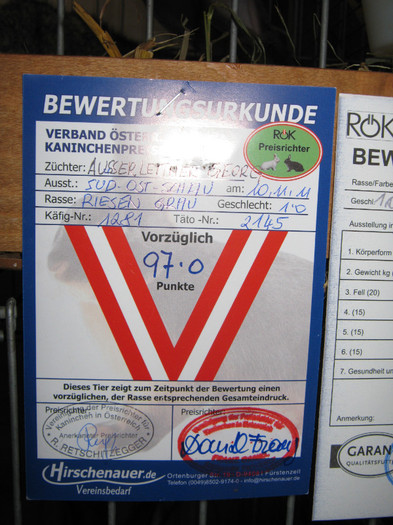 BEWERTUNGSURKUNDE
VERBAND ÖSTER
KANINCHENPREI
RÖK
Preisrichter
Züchter:
Ausst.: SÜD-OST-SCHAU am: 10.11.11
Rasse: RIESEN GRAU Geschlecht: 1.0
Käfig-Nr.: 1281 Täto-Nr.: 2145
Vorzüglich
97.0
Punkte
Dieses Tier zeigt zum Zeitpunkt der Bewertung einen
vorzüglichen, der Rasse entsprechenden Gesamteindruck.
Preisrichter
Preisrichter:
Kaninchen in Österreich
Anerkannter Preisrichter
R. RETSCHITZEGGER
Hirschenauer.de
Vereinsbedarf
Ortenburger
Fürstenzell
RÖK
BEW
Rasse/Farbe
Geschl
Ausstellung in
1. Körperform
2. Gewicht kg
3. Fell (20)
4. (15)
5. (15)
6. (15)
7. Gesundheit un
Anmerkung:
GARAN
QUALITÄTSFUTT